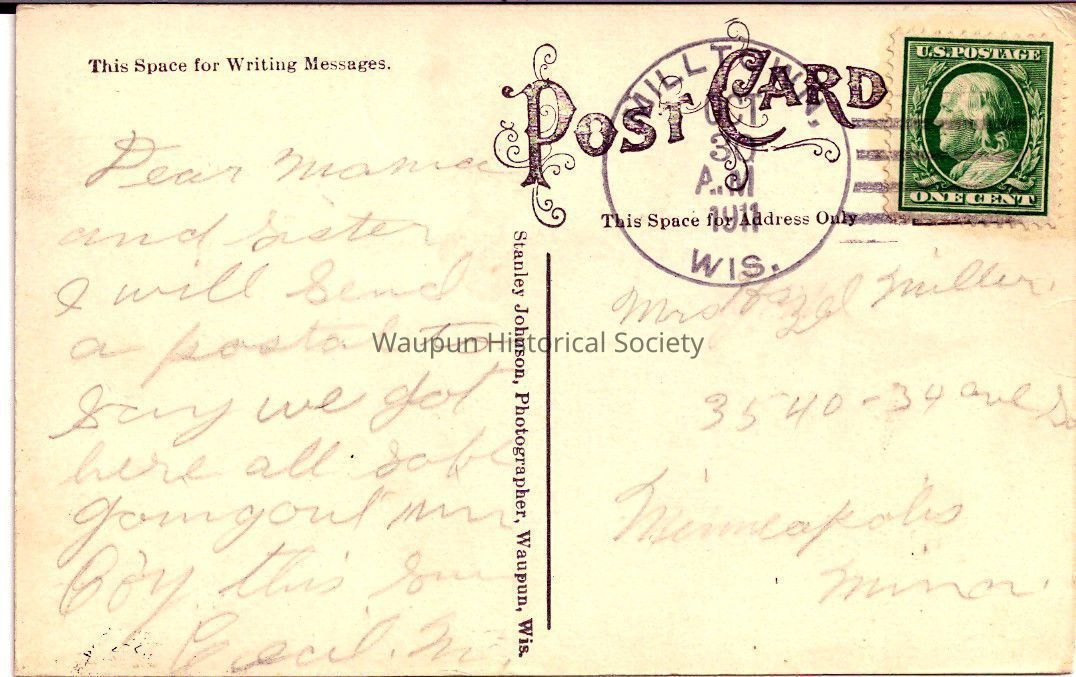 This Space for Writing Messages.
POST CARD
MILLTOWN,
OCT
30
A.M
1911
WIS.
U.S. POSTAGE
ONE CENT
This Space for Address Only
Dear Mama
and Sister
I will Send
a postal to
Say we got
here all safe
going out
Boy this
Cecil. M.
Stanley Johnson, Photographer, Waupun, Wis.
Mrs Hazel Miller.
3540-34 ave So
Minneapolis
Minn.
Waupun Historical Society